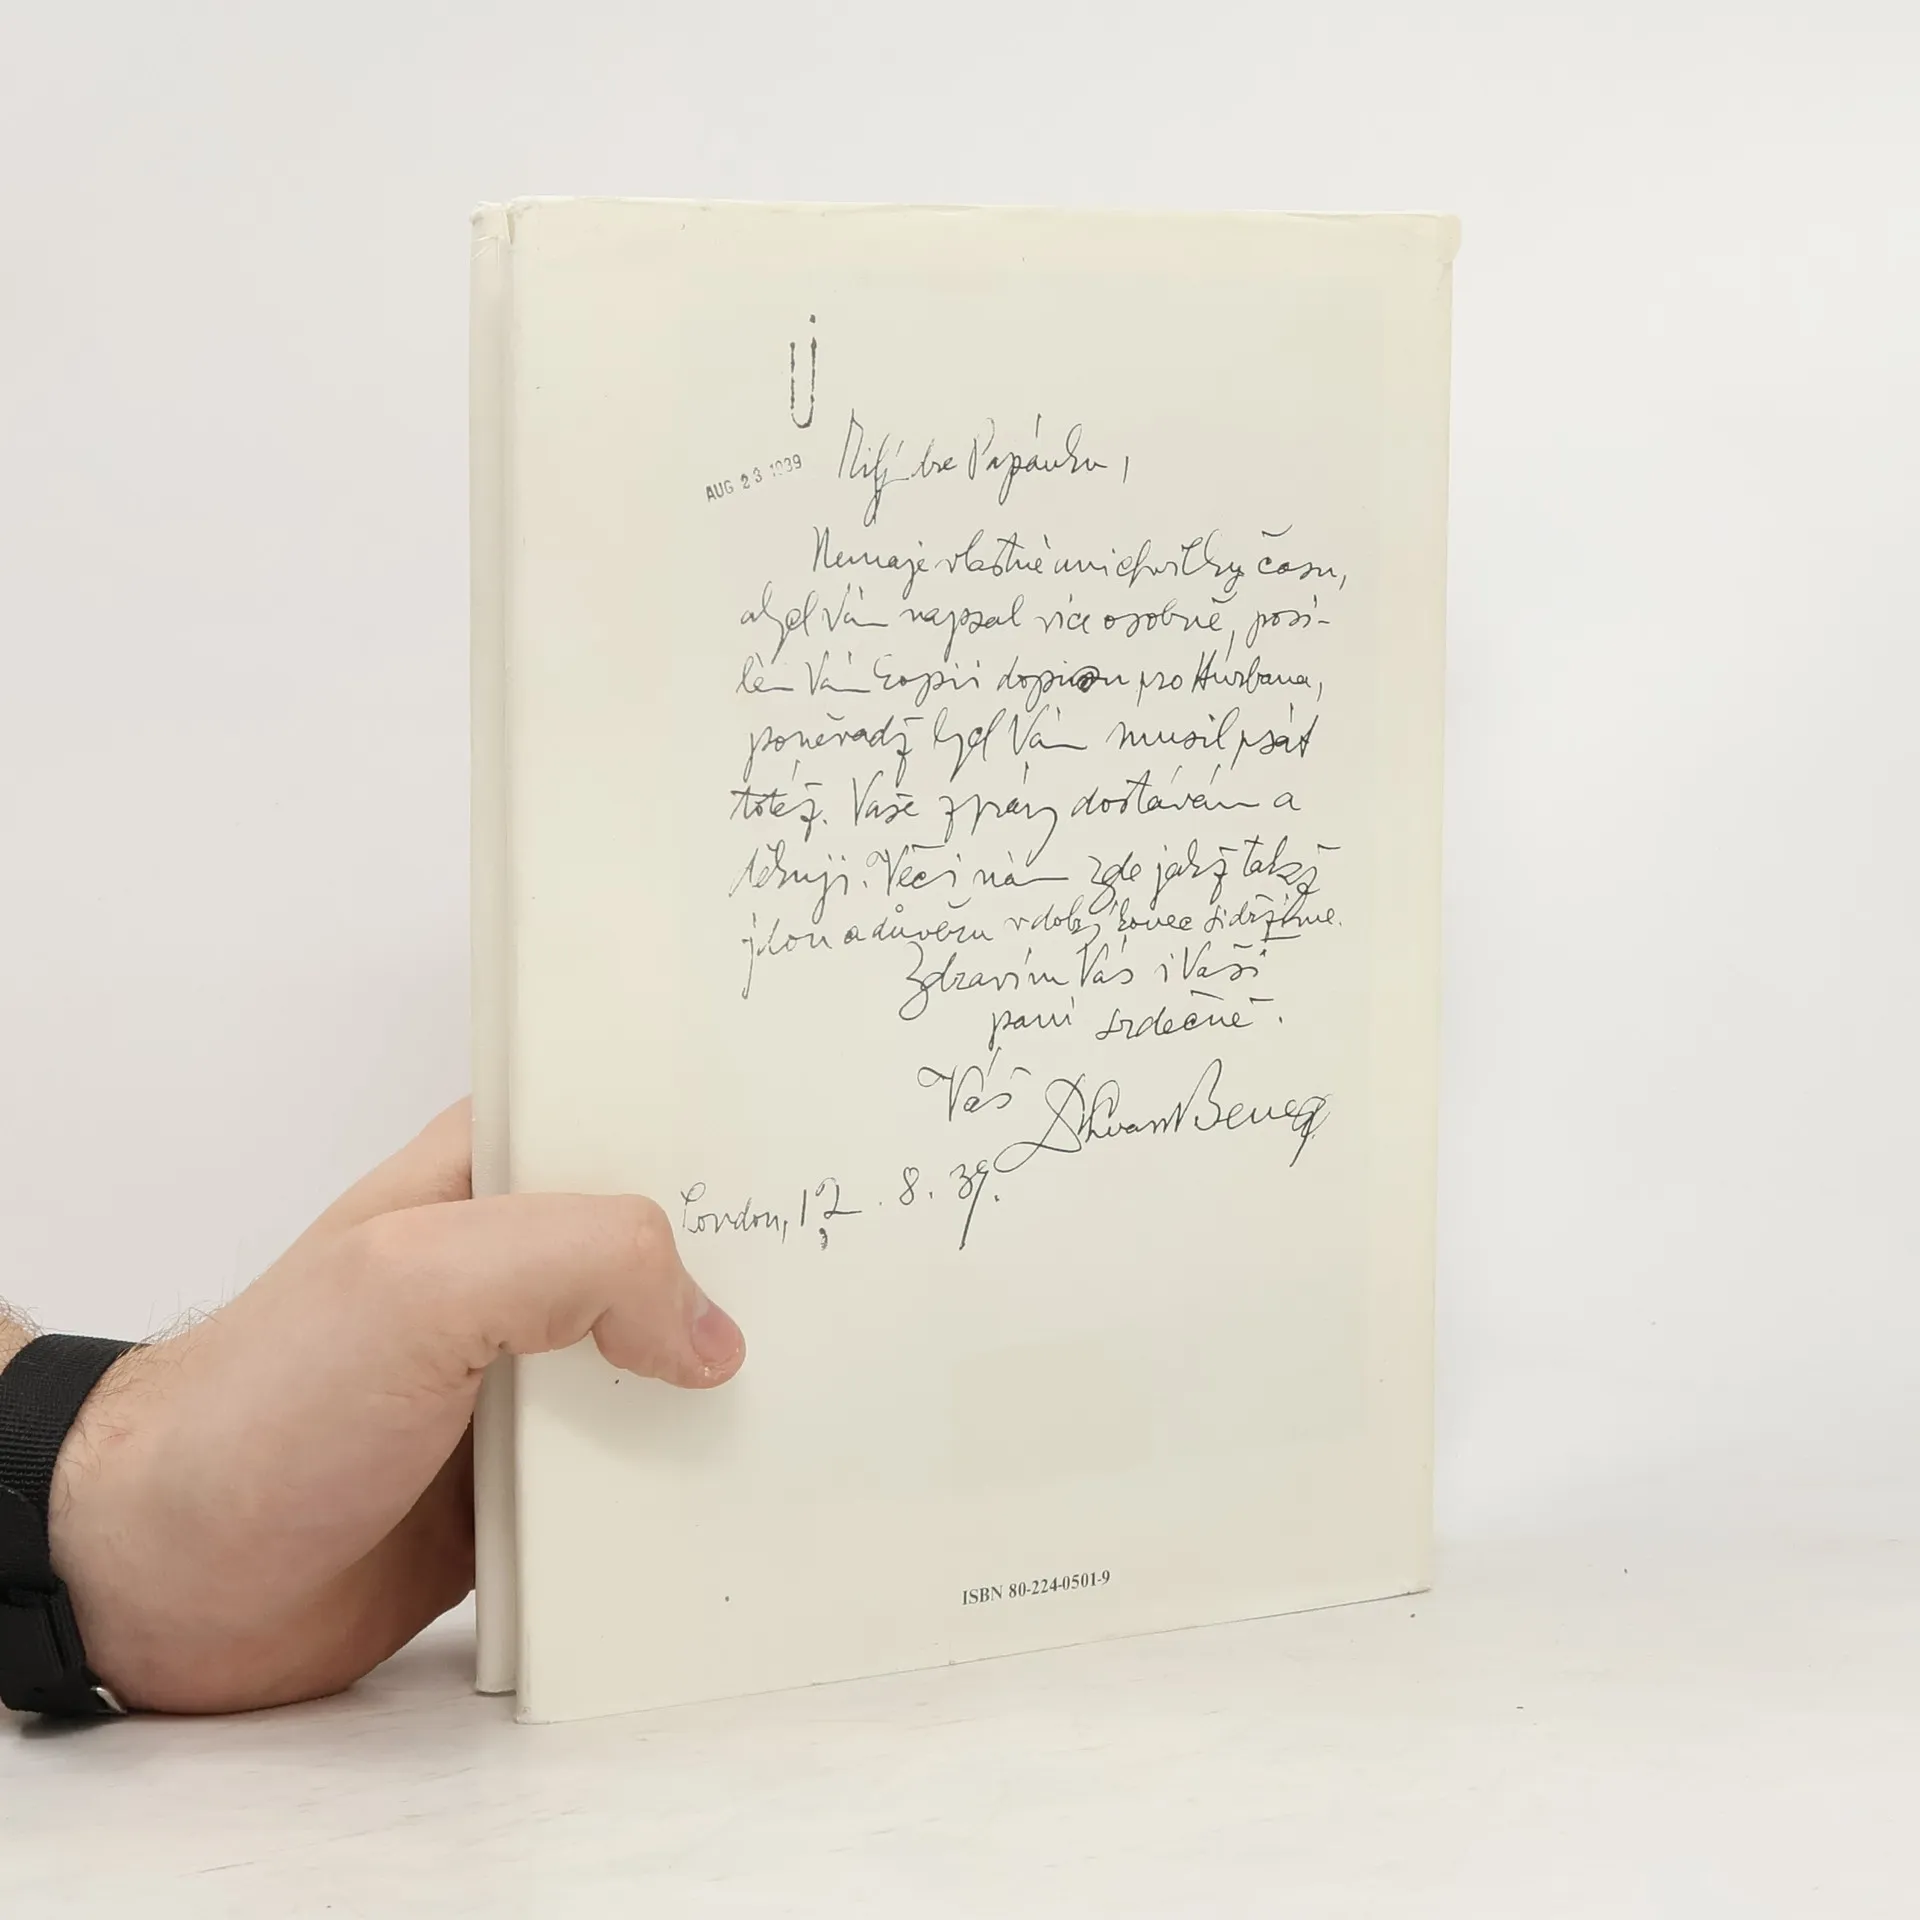 AUG 23 1939
Milý dre Papánku,
Nemaje vlastně ani chvilky času,
abych Vám napsal více osobně, posí-
lám Vám kopii dopisu pro Hurbana,
poněvadž bych Vám musil psát
totéž. Vaše zprávy dostávám a
děkuji. Věci nám zde jakž takž
jdou a důvěru v dobrý konec si držíme.
Zdravím Vás i Vaší
paní srdečně.
Váš DrEdvard Beneš
London, 12. 8. 39.
ISBN 80-224-0501-9